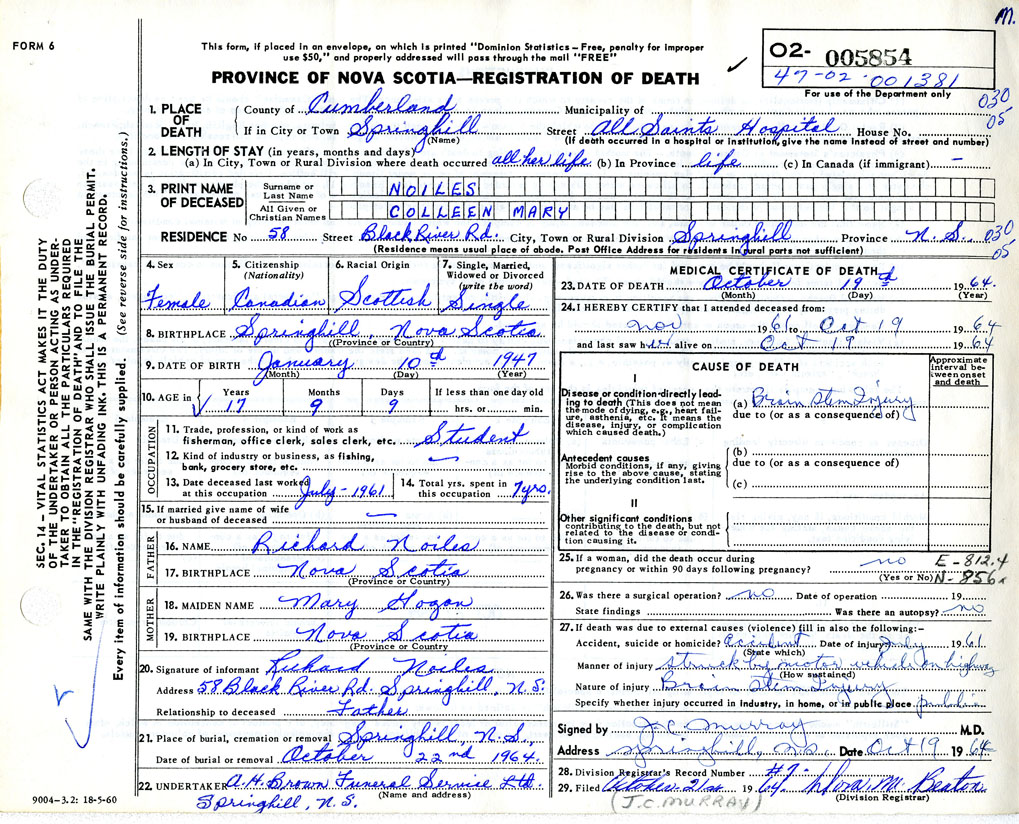 M.
FORM 6
This form, if placed in an envelope, on which is printed "Dominion Statistics – Free, penalty for improper
use $50," and properly addressed will pass through the mail "FREE"
PROVINCE OF NOVA SCOTIA—REGISTRATION OF DEATH
O2- 005854
47-02-001381
For use of the Department only
030
05
1. PLACE OF DEATH
County of Cumberland Municipality of
If in City or Town Springhill Street All Saints Hospital House No.
(Name) (If death occurred in a hospital or institution, give the name instead of street and number)
2. LENGTH OF STAY (in years, months and days)
(a) In City, Town or Rural Division where death occurred all her life (b) In Province life (c) In Canada (if immigrant) —
3. PRINT NAME OF DECEASED
Surname or Last Name NOILES
All Given or Christian Names COLLEEN MARY
RESIDENCE No 58 Street Black River Rd. City, Town or Rural Division Springhill Province N.S. 030
05
(Residence means usual place of abode. Post Office Address for residents in rural parts not sufficient)
4. Sex Female
5. Citizenship (Nationality) Canadian
6. Racial Origin Scottish
7. Single, Married, Widowed or Divorced (write the word) Single
8. BIRTHPLACE Springhill, Nova Scotia
(Province or Country)
9. DATE OF BIRTH January 10th 1947
(Month) (Day) (Year)
10. AGE in Years 17 Months 9 Days 9 If less than one day old hrs. or min.
OCCUPATION
11. Trade, profession, or kind of work as
fisherman, office clerk, sales clerk, etc. Student
12. Kind of industry or business, as fishing,
bank, grocery store, etc. —
13. Date deceased last worked at this occupation July - 1961
14. Total yrs. spent in this occupation 7 yrs.
15. If married give name of wife
or husband of deceased —
FATHER
16. NAME Richard Noiles
17. BIRTHPLACE Nova Scotia
(Province or Country)
MOTHER
18. MAIDEN NAME Mary Hogan
19. BIRTHPLACE Nova Scotia
(Province or Country
20. Signature of informant Richard Noiles
Address 58 Black River Rd. Springhill, N.S.
Relationship to deceased Father
21. Place of burial, cremation or removal Springhill, N.S.,
Date of burial or removal October 22nd 1964.
22. UNDERTAKER A.H. Brown Funeral Service Ltd.
(Name and address)
Springhill, N.S.
9004-3.2: 18-5-60
MEDICAL CERTIFICATE OF DEATH
23. DATE OF DEATH October 19th 1964.
(Month) (Day) (Year)
24. I HEREBY CERTIFY that I attended deceased from:
Nov 1961 to Oct 19 1964
and last saw her alive on Oct 19 1964
CAUSE OF DEATH
Approximate interval between onset and death
I
Disease or condition directly leading to death (This does not mean the mode of dying, e.g., heart failure, asthenia, etc. It means the disease, injury, or complication which caused death.)
(a) Brain Stem Injury
due to (or as a consequence of)
Antecedent causes
Morbid conditions, if any, giving rise to the above cause, stating the underlying condition last.
(b)
due to (or as a consequence of)
(c)
II
Other significant conditions
contributing to the death, but not related to the disease or condition causing it.
25. If a woman, did the death occur during
pregnancy or within 90 days following pregnancy? no
(Yes or No)
E - 812.4
N - 856
26. Was there a surgical operation? no Date of operation 19
State findings Was there an autopsy? no
27. If death was due to external causes (violence) fill in also the following:–
Accident, suicide or homicide? Accident Date of injury July 1961
(State which)
Manner of injury struck by motor vehicle on highway
(How sustained)
Nature of injury Brain Stem Injury
Specify whether injury occurred in industry, in home, or in public place
Signed by J.C. Murray M.D.
Address Springhill, N.S Date Oct 19 1964
28. Division Registrar's Record Number #7-
29. Filed October 21st 1964 Nora M. Beaton
(J.C. MURRAY) (Division Registrar)
SEC. 14 – VITAL STATISTICS ACT MAKES IT THE DUTY
OF THE UNDERTAKER OR PERSON ACTING AS UNDER-
TAKER TO OBTAIN ALL THE PARTICULARS REQUIRED
IN THE "REGISTRATION OF DEATH" AND TO FILE THE
SAME WITH THE DIVISION REGISTRAR WHO SHALL ISSUE THE BURIAL PERMIT.
WRITE PLAINLY WITH UNFADING INK. THIS IS A PERMANENT RECORD.
Every item of information should be carefully supplied. (See reverse side for instructions.)